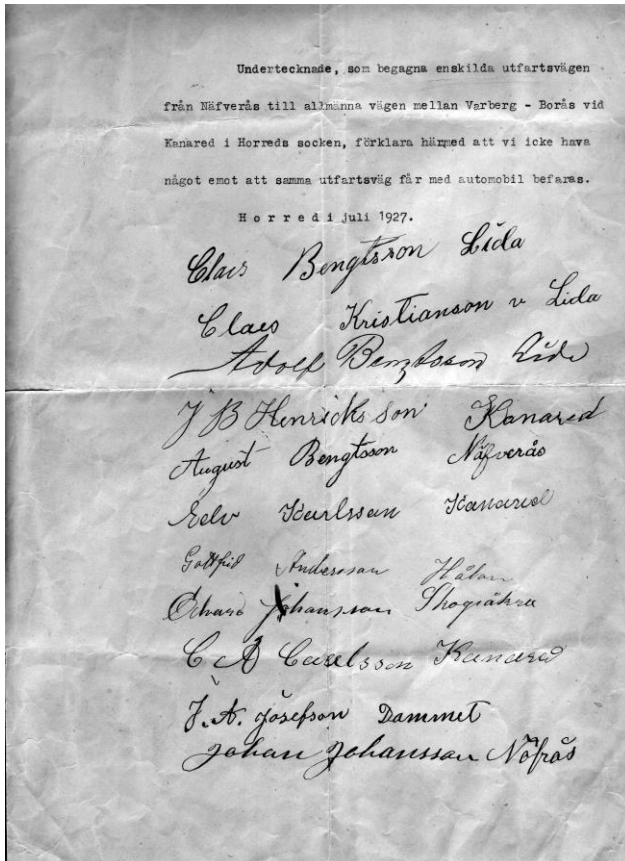 Undertecknade, som begagna enskilda utfartsvägen
från Näfverås till allmänna vägen mellan Varberg - Borås vid
Kanared i Horreds socken, förklara härmed att vi icke hava
något emot att samma utfartsväg får med automobil befaras.
Horred i juli 1927.
Claes Bengtsson Lida
Claes Kristianson v Lida
Adolf Bengtsson Lida
J B Henricksson Kanared
August Bengtsson Näfverås
Karlsson Kanared
Gottfrid Andersson Hålan
Edvard Johansson
C A Carlsson Kanared
J. A. Josefson Dammet
Johan Johansson Näfrås